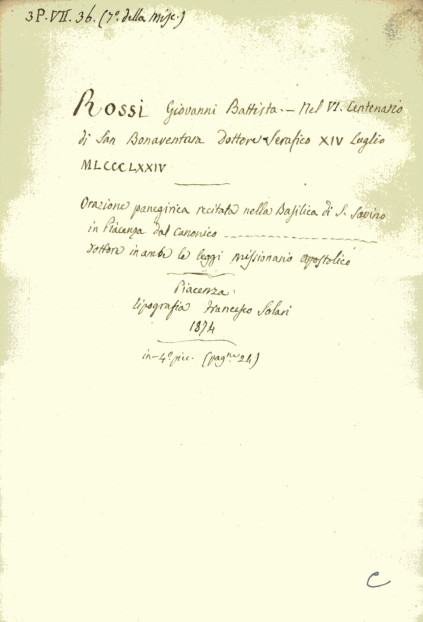 3P.VII. 36. (7º. della Misc.)
Rossi Giovanni Battista. — Nel VI. Centenario
di San Bonaventura Dottore Serafico XIV Luglio
MLCCCLXXIV
Orazione panegirica recitata nella Basilica di S. Savino
in Piacenza dal Canonico ————
dottore in ambe le leggi missionario apostolico
Piacenza.
tipografia Francesco Solari
1874
in-4º picc. (pagne 24)
C